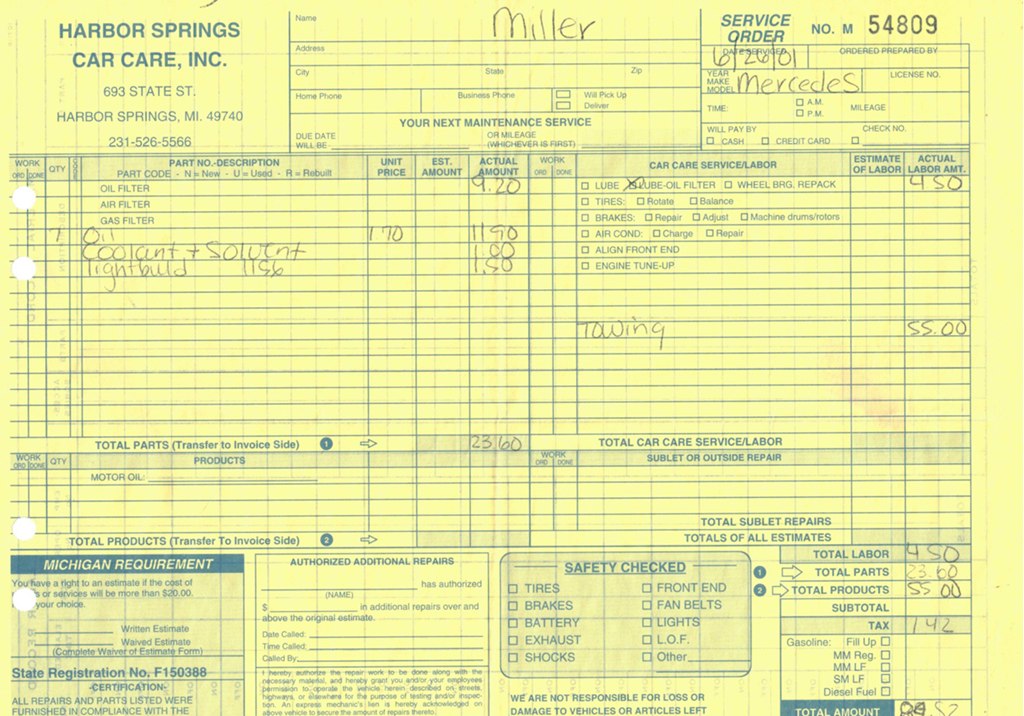 HARBOR SPRINGS
CAR CARE, INC.
693 STATE ST.
HARBOR SPRINGS, MI. 49740
231-526-5566
Name Miller
Address
City State Zip
Home Phone Business Phone Will Pick Up
Deliver
YOUR NEXT MAINTENANCE SERVICE
DUE DATE WILL BE OR MILEAGE (WHICHEVER IS FIRST)
SERVICE ORDER NO. M 54809
DATE SERVICED 6/26/01 ORDERED PREPARED BY
YEAR MAKE MODEL Mercedes LICENSE NO.
TIME: A.M. P.M. MILEAGE
WILL PAY BY CASH CREDIT CARD CHECK NO.
WORK ORD DONE QTY PART NO.-DESCRIPTION UNIT PRICE EST. AMOUNT ACTUAL AMOUNT WORK ORD DONE CAR CARE SERVICE/LABOR ESTIMATE OF LABOR ACTUAL LABOR AMT.
PART CODE - N = New - U = Used - R = Rebuilt
OIL FILTER 9.20 LUBE LUBE-OIL FILTER WHEEL BRG. REPACK 4 50
AIR FILTER TIRES: Rotate Balance
GAS FILTER BRAKES: Repair Adjust Machine drums/rotors
7 Oil 1 70 11 90 AIR COND: Charge Repair
Coolant + Solvent 1.00 ALIGN FRONT END
lightbuld 1156 1.50 ENGINE TUNE-UP
Towing 55.00
TOTAL PARTS (Transfer to Invoice Side) 1 23 60 TOTAL CAR CARE SERVICE/LABOR
WORK ORD DONE QTY PRODUCTS WORK ORD DONE SUBLET OR OUTSIDE REPAIR
MOTOR OIL:
TOTAL SUBLET REPAIRS
TOTAL PRODUCTS (Transfer To Invoice Side) 2 TOTALS OF ALL ESTIMATES
MICHIGAN REQUIREMENT
You have a right to an estimate if the cost of
s or services will be more than $20.00.
your choice.
Written Estimate
Waived Estimate
(Complete Waiver of Estimate Form)
State Registration No. F150388
-CERTIFICATION-
ALL REPAIRS AND PARTS LISTED WERE
FURNISHED IN COMPLIANCE WITH THE
AUTHORIZED ADDITIONAL REPAIRS
has authorized
(NAME)
$ in additional repairs over and
above the original estimate.
Date Called:
Time Called:
Called By
I hereby authorize the repair work to be done along with the
necessary material, and hereby grant you and/or your employees
permission to operate the vehicle herein described on streets,
highways, or elsewhere for the purpose of testing and/or inspec-
tion. An express mechanic's lien is hereby acknowledged on
above vehicle to secure the amount of repairs thereto.
SAFETY CHECKED
TIRES FRONT END
BRAKES FAN BELTS
BATTERY LIGHTS
EXHAUST L.O.F.
SHOCKS Other
WE ARE NOT RESPONSIBLE FOR LOSS OR
DAMAGE TO VEHICLES OR ARTICLES LEFT
TOTAL LABOR 4 50
1 TOTAL PARTS 23.60
2 TOTAL PRODUCTS 55 00
SUBTOTAL
TAX 1 42
Gasoline: Fill Up
MM Reg.
MM LF
SM LF
Diesel Fuel
TOTAL AMOUNT 52